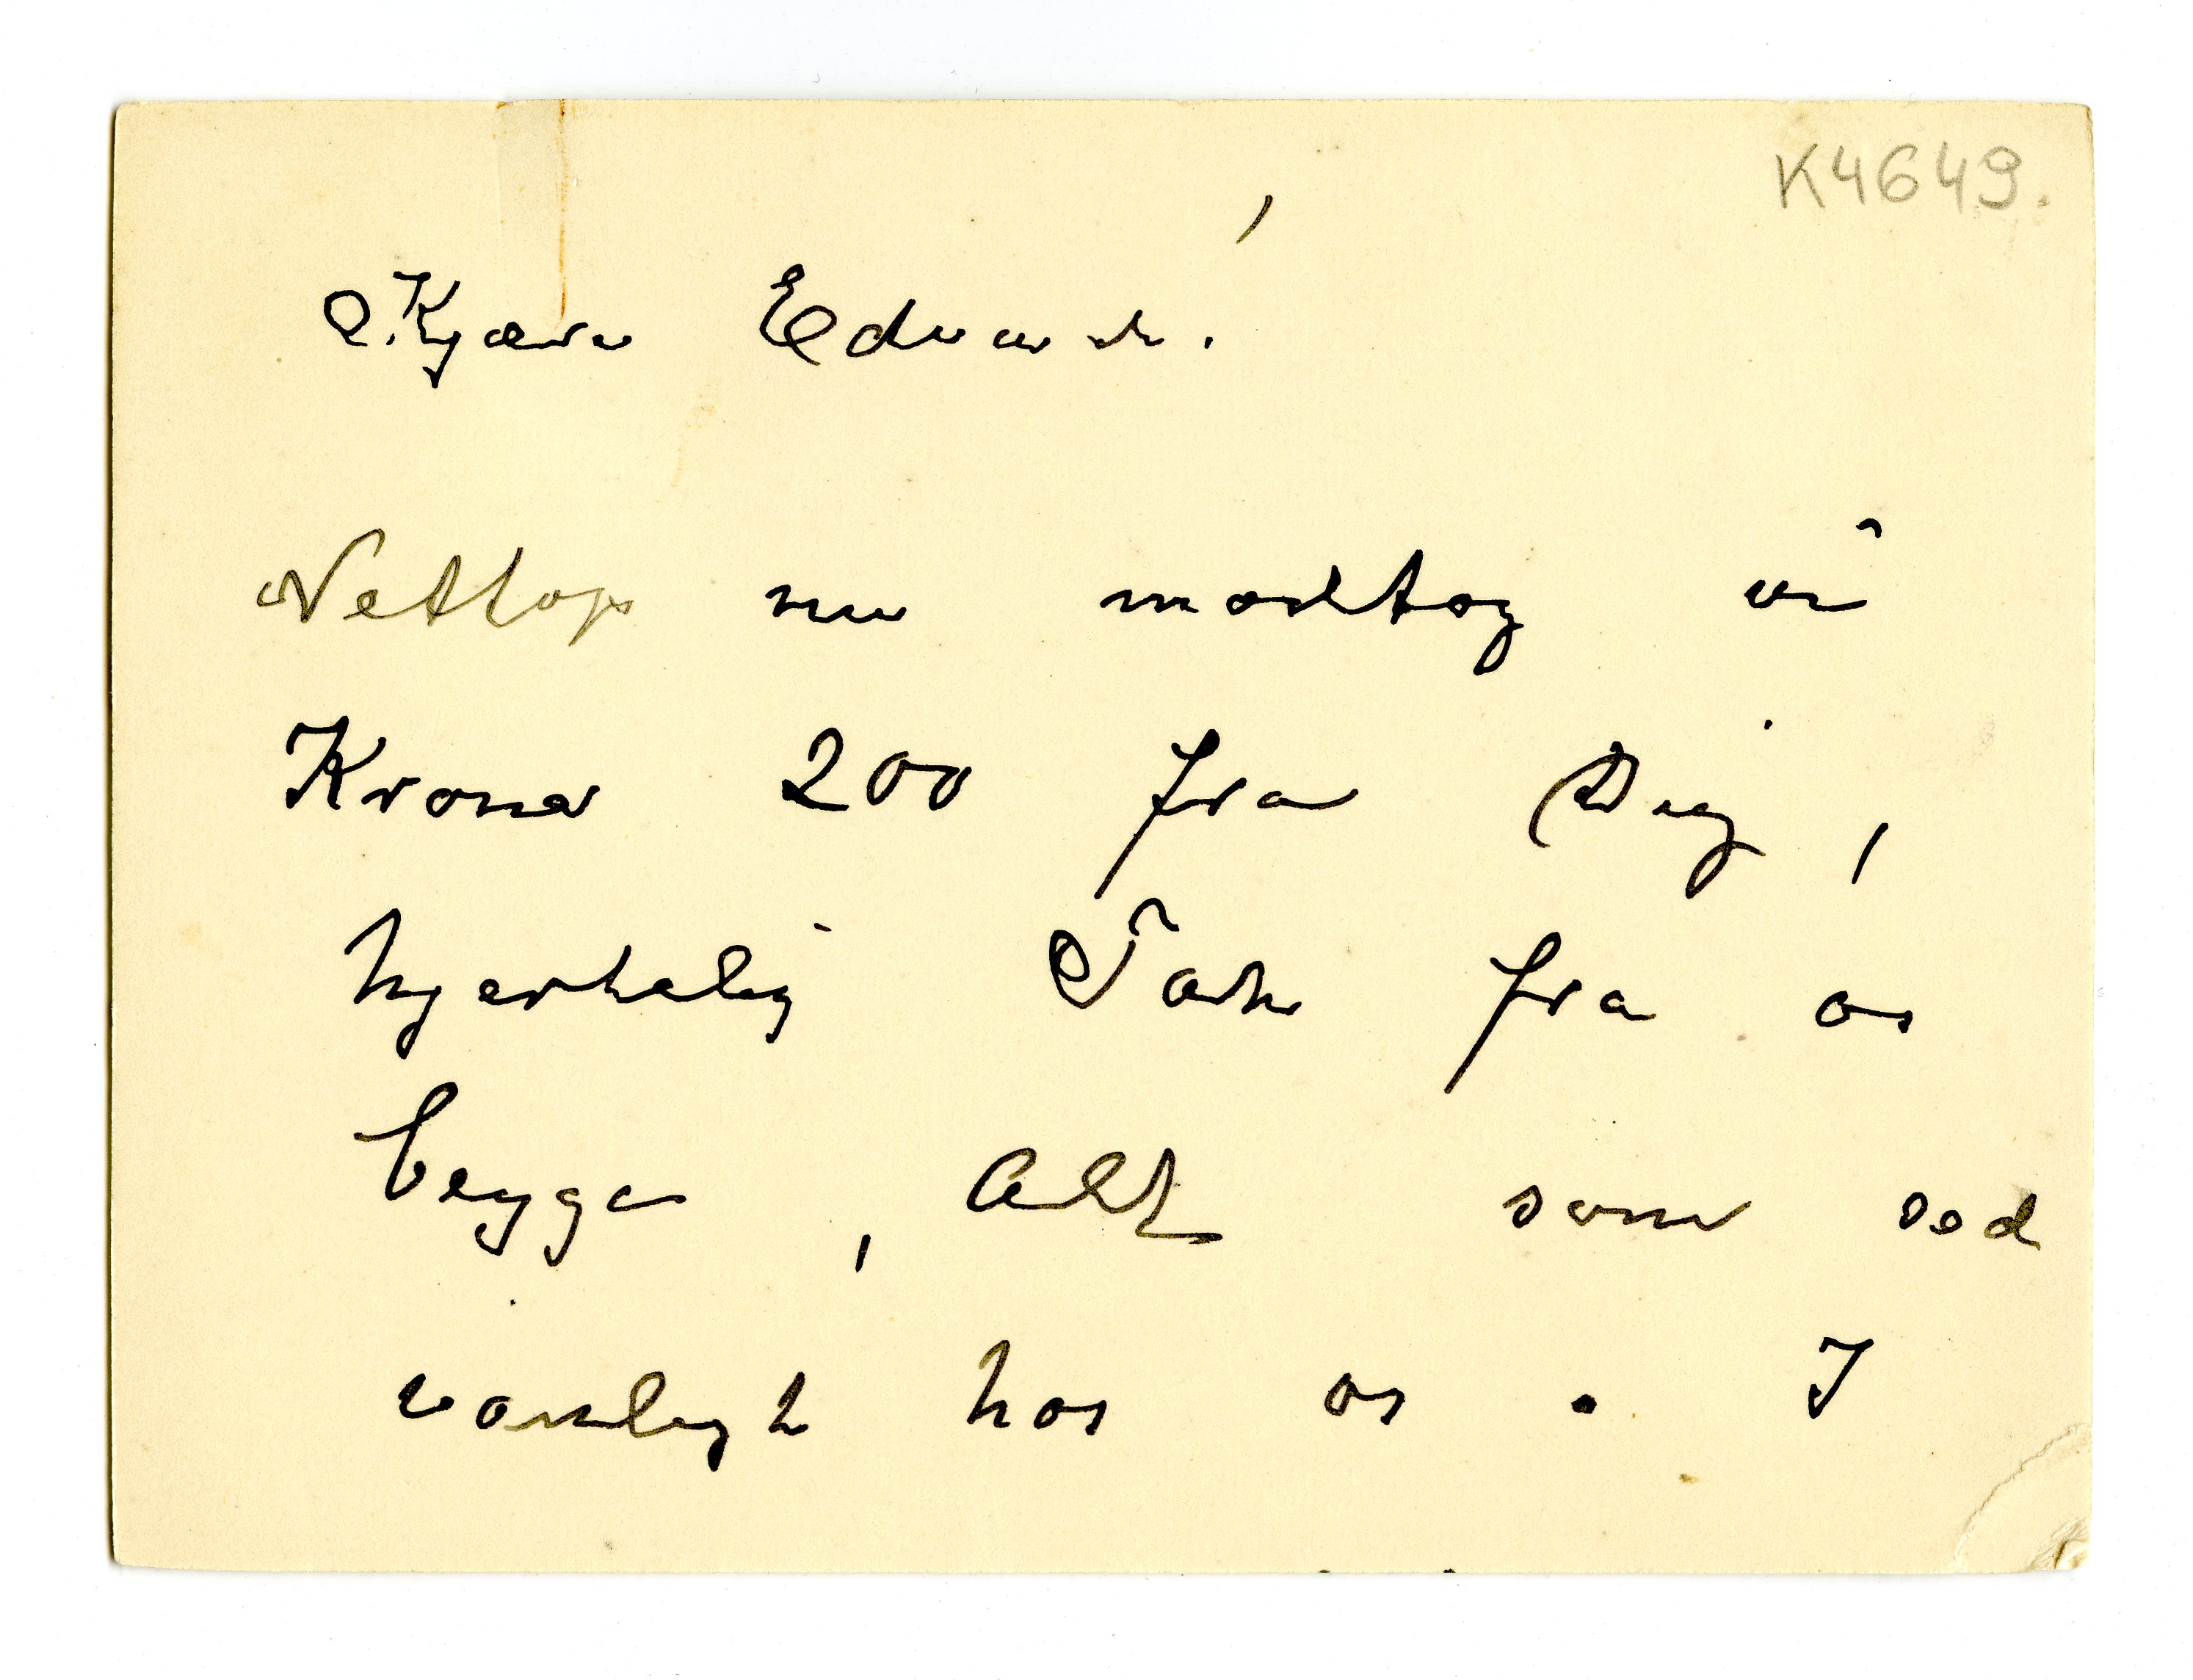 K4649.
Kjære Edvard!
Nettop nu modtog vi
Kroner 200 fra Dig,
hjertelig Takk fra os
begge, Alt som sed
vanligt hos os. I